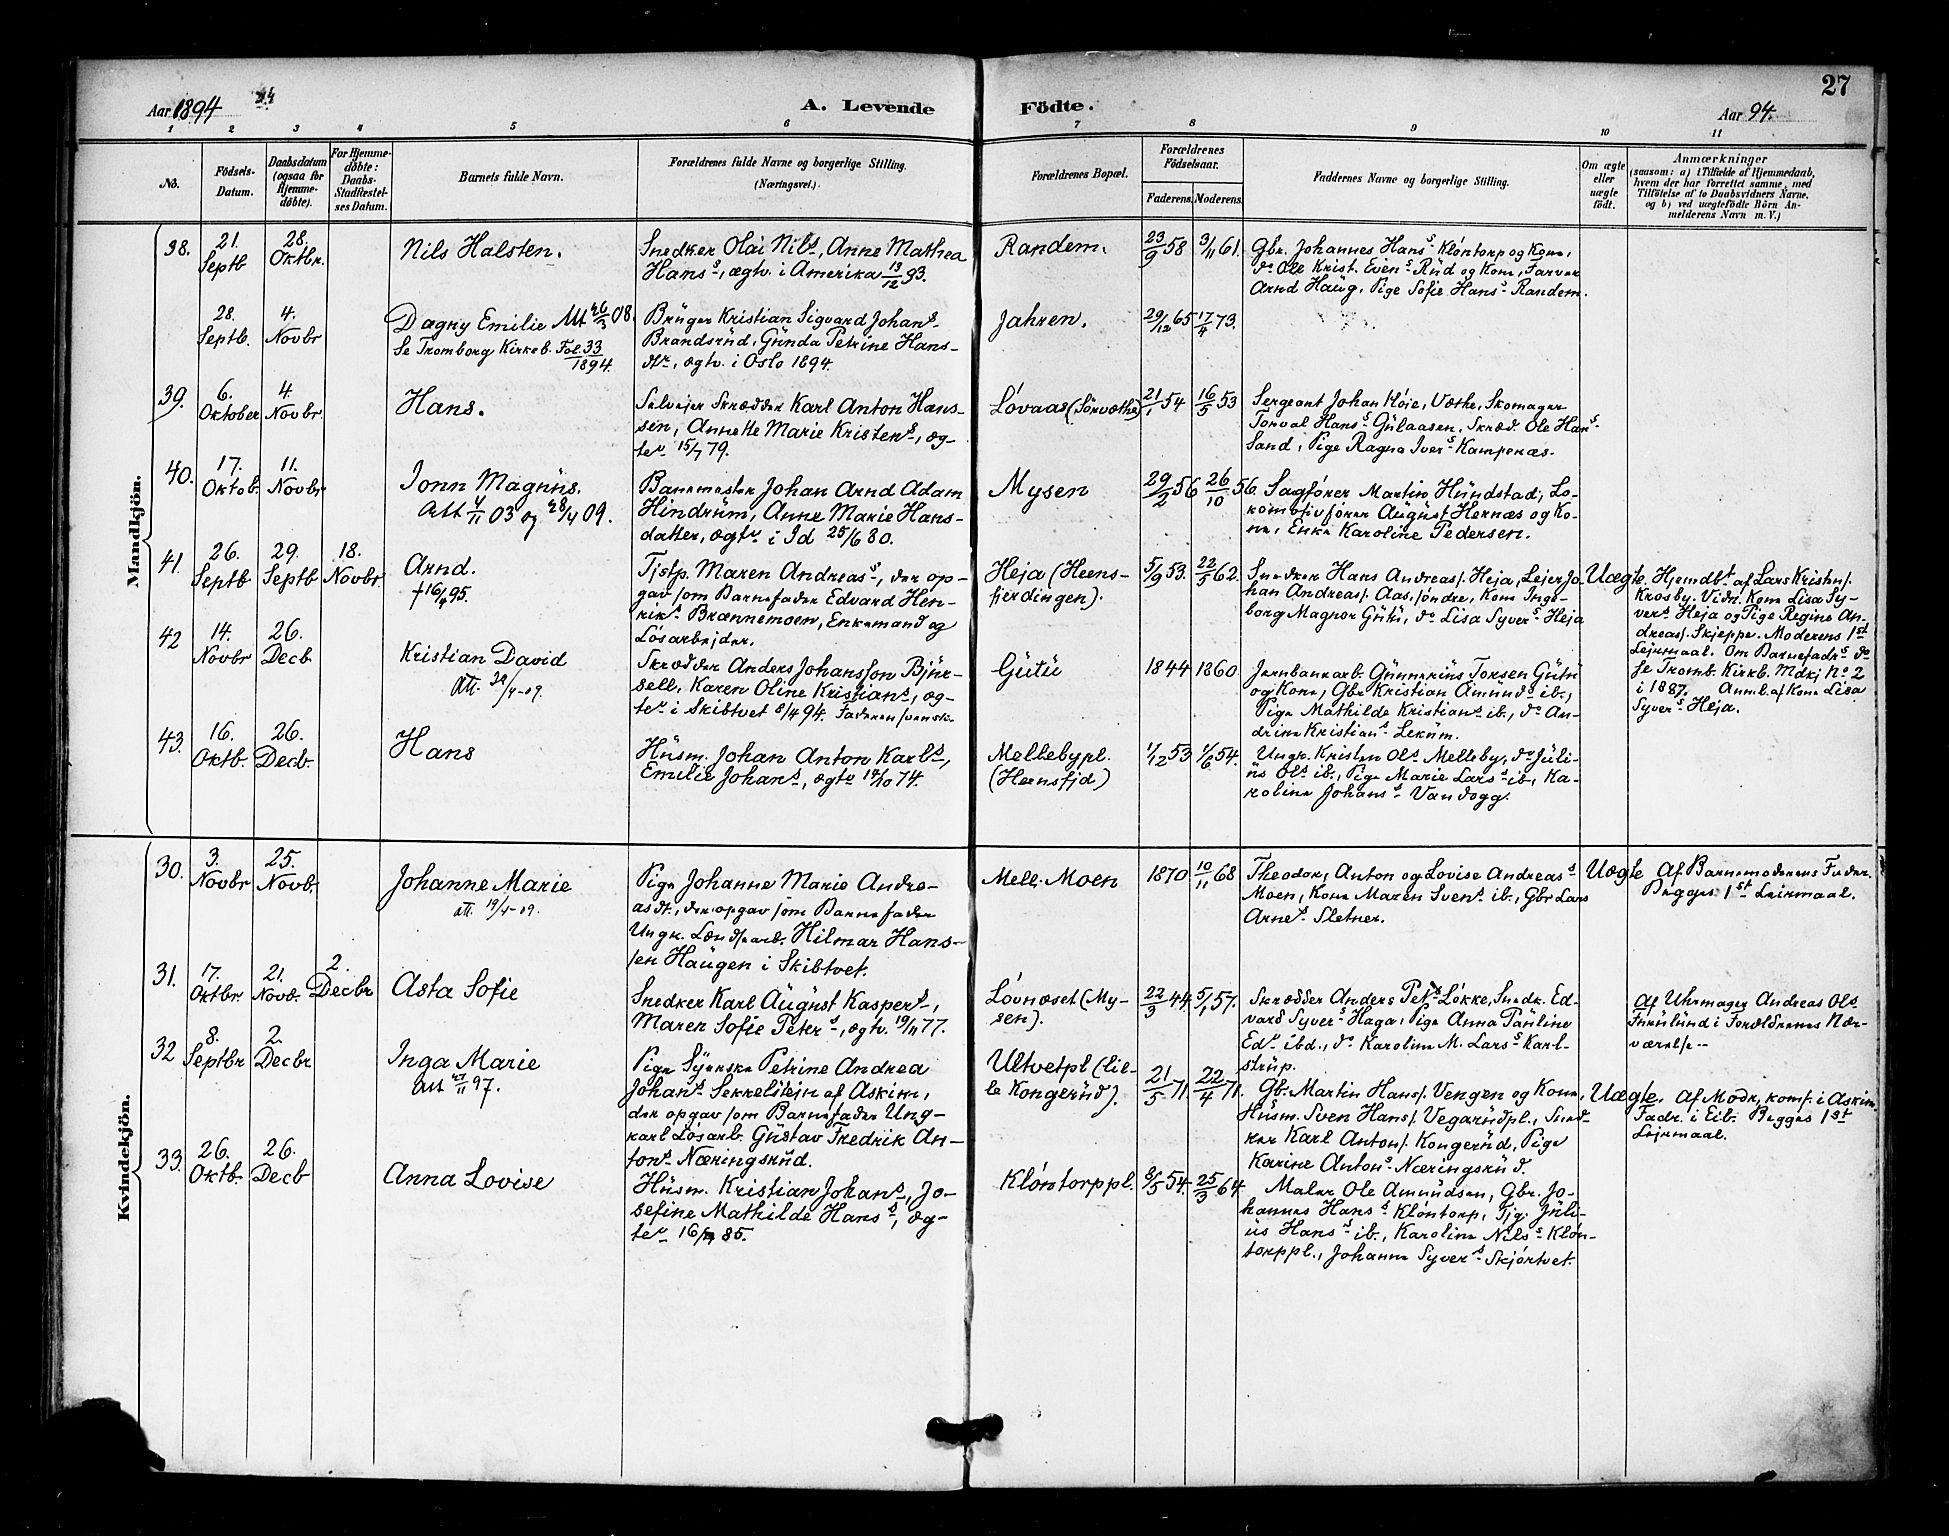 27
Aar 1894
A. Levende Födte.
Aar 94.
1 2 3 4 5 6 7 8 9 10 11
No.
Födsels-Datum.
Daabsdatum (ogsaa for Hjemme-döbte).
For Hjemme-döbte: Daabs-Stadfæstel-ses Datum.
Barnets fulde Navn.
Forældrenes fulde Navne og borgerlige Stilling.
(Næringsvei.)
Forældrenes Bopæl.
Forældrenes Födselsaar.
Faderens. Moderens.
Faddernes Navne og borgerlige Stilling.
Om ægte eller uægte födt.
Anmærkninger
(saasom: a) i Tilfælde af Hjemmedaab,
hvem der har forrettet samme, med
Tilföielse af to Daabsvidners Navne.
og b) ved uægtefödte Börn An-
melderens Navn m. V.)
Mandkjön.
38.
21. Septb
28. Oktbr.
Nils Halsten.
Snedker Olai Nils, Anne Mathea
Hans, ægtv. i Amerika 13/12 93.
Randem.
23/9 58
3/11 61.
Gbr. Johannes Hans Klöntorp og Kone,
do Ole Krist. Evens Rüd og Kone, Farver
Arnd Haug, Pige Sofie Hans Randem.
28. Septb.
4. Novbr
Dagny Emilie Att 26/3 08.
Se Tromborg Kirkeb. Fol. 33
1894.
Brüger Kristian Sigvard Johans
Brandsrüd, Günda Petrine Hans-
dtr, ægtv. i Oslo 1894.
Jahren.
29/12 65
17/4 73.
39.
6. Oktober
4. Novbr
Hans.
Selveier Skrædder Karl Anton Hans-
sen, Annette Marie Kristens, æg-
tev 15/7 79.
Lövaas (Sörvæthe)
21/1 54
16/5 53
Sergeant Johan Höie, Væthe, Skomager
Torval Hans Gülaasen, Skræd. Ole Hans
Sand, Pige Ragna Ivers Kampenæs.
40.
17. Oktob.
11. Novbr
Jonn Magnüs.
Att 4/11 03 og 28/4 09.
Banemester Johan Arnd Adam
Hindrüm, Anne Marie Hans-
datter, ægtv i Id 25/6 80.
Mysen
29/2 56
26/10 56.
Sagförer Martin Hündstad, Lo-
komotivförer Aügüst Hernæs og Ko-
ne, Enke Karoline Pedersen.
41.
26. Septb
29. Septb
18. Novbr
Arnd.
Tjstp. Maren Andreas, der op-
gav som Barnefader Edvard Hen-
riks Brænnemoen, Enkemand og
Lösarbeider.
Heja (Heens-
fjerdingen).
5/9 53.
22/5 62.
Snedker Hans Andreas. Heja, Lejer Jo-
han Andreas. Aas. söndre, Kone Inge-
borg Magnor Gütü, do Lisa Syvers Heja
Uægte.
Hjemdbt af Lars Kristn.
Krosby. Vidn. Kone Lisa Sy-
vers Heja og Pige Regine An-
dreas. Skjeppe. Moderens 1st
Lejrmaal. Om Barnefadr. do
Se Tromb. Kirkb. Mdkj No 2
i 1887. Anml. af Kone Lisa
Syvers Heja.
42
14. Novbr
26. Decb
Kristian David
Att.
Skrædder Anders Johansson Bjür-
sell, Karen Oline Kristians, æg-
tev i Skibtvet 8/4 94. Faderen svensk.
Gütü
1844
1860
Jernbanearb. Günnerüs Torsen Gütü
og Kone, Gbr. Kristian Amünds ib.,
Pige Mathilde Kristians ib., do An-
drine Kristians Leküm.
43.
16. Oktb.
26. Decb.
Hans
Hüsm. Johan Anton Karls,
Emilie Johans, ægtv 14/10 74.
Mellebypl.
(Heensfjd)
1/12 53
1/6 54.
Ungk. Kristen Ols Melleby, do Jüli-
üs Ols ib., Pige Marie Lars ib., Ka-
roline Johans Vandogg.
Kvindekjön.
30.
3. Novbr
25. Novb.
Johanne Marie
att. 19/4-09.
Pige Johanne Marie Andre-
asdt., der opgav som Barnefader
Ungk. Landsarb. Hilmar Hans-
sen Haügen i Skibtvet.
Mell. Moen
1870
10/11 68
Theodor, Anton og Lovise Andreas
Moen, Kone Maren Svens ib., Gbr Lars
Arnes Sletner.
Uægte
Af Barnemoderens Fader.
Begges 1st Leirmaal.
31.
17. Oktbr.
21. Novb.
2. Decbr
Asta Sofie
Snedker Karl Aügüst Kaspers,
Maren Sofie Peters, ægtv. 19/11 77.
Lövnæset (My-
sen).
22/3 44.
5/1 57.
Skrædder Anders Pets Lökke, Snedk. Ed-
vard Syvers Haga, Pige Anna Paüline
Eds ibd., do Karoline M. Lars Karl-
strüp.
Af Uhrmager Andreas Ols
Fürülünd i Forældrenes Nær-
værelse.
32
8. Septbr
2. Decbr
Inga Marie
Att 97.
Pige Syverske Petrine Andrea
Johans Sekkelstejn af Askim,
der opgav som Barnefader Ung-
karl Lösarb. Güstav Fredrik An-
tons Næringsrüd.
Ultvetpl (lil-
le Kongerüd).
21/5 71.
22/4 71.
Gbr. Martin Hans. Vengen og Kone,
Hüsm. Sven Hans. Vegarüdpl., Sned-
ker Karl Anton. Kongerüd, Pige
Karine Antons Næringsrüd.
Uægte.
Af Modr, komf. i Askim
Fadr. i Eib. Begges 1st
Lejrmaal.
33.
26. Oktb.
26. Decb
Anna Lovise
Hüsm. Kristian Johans, Jo-
sefine Mathilde Hans, æg-
tev 85.
Klöntorppl.
8/5 54.
25/3 64.
Maler Ole Amündsen, Gbr. Jo-
hannes Hans Klöntorp, Tjg. Jüli-
üs Hans ib., Karoline Nils Klön-
torppl., Johanne Syvers Skjörtvet.